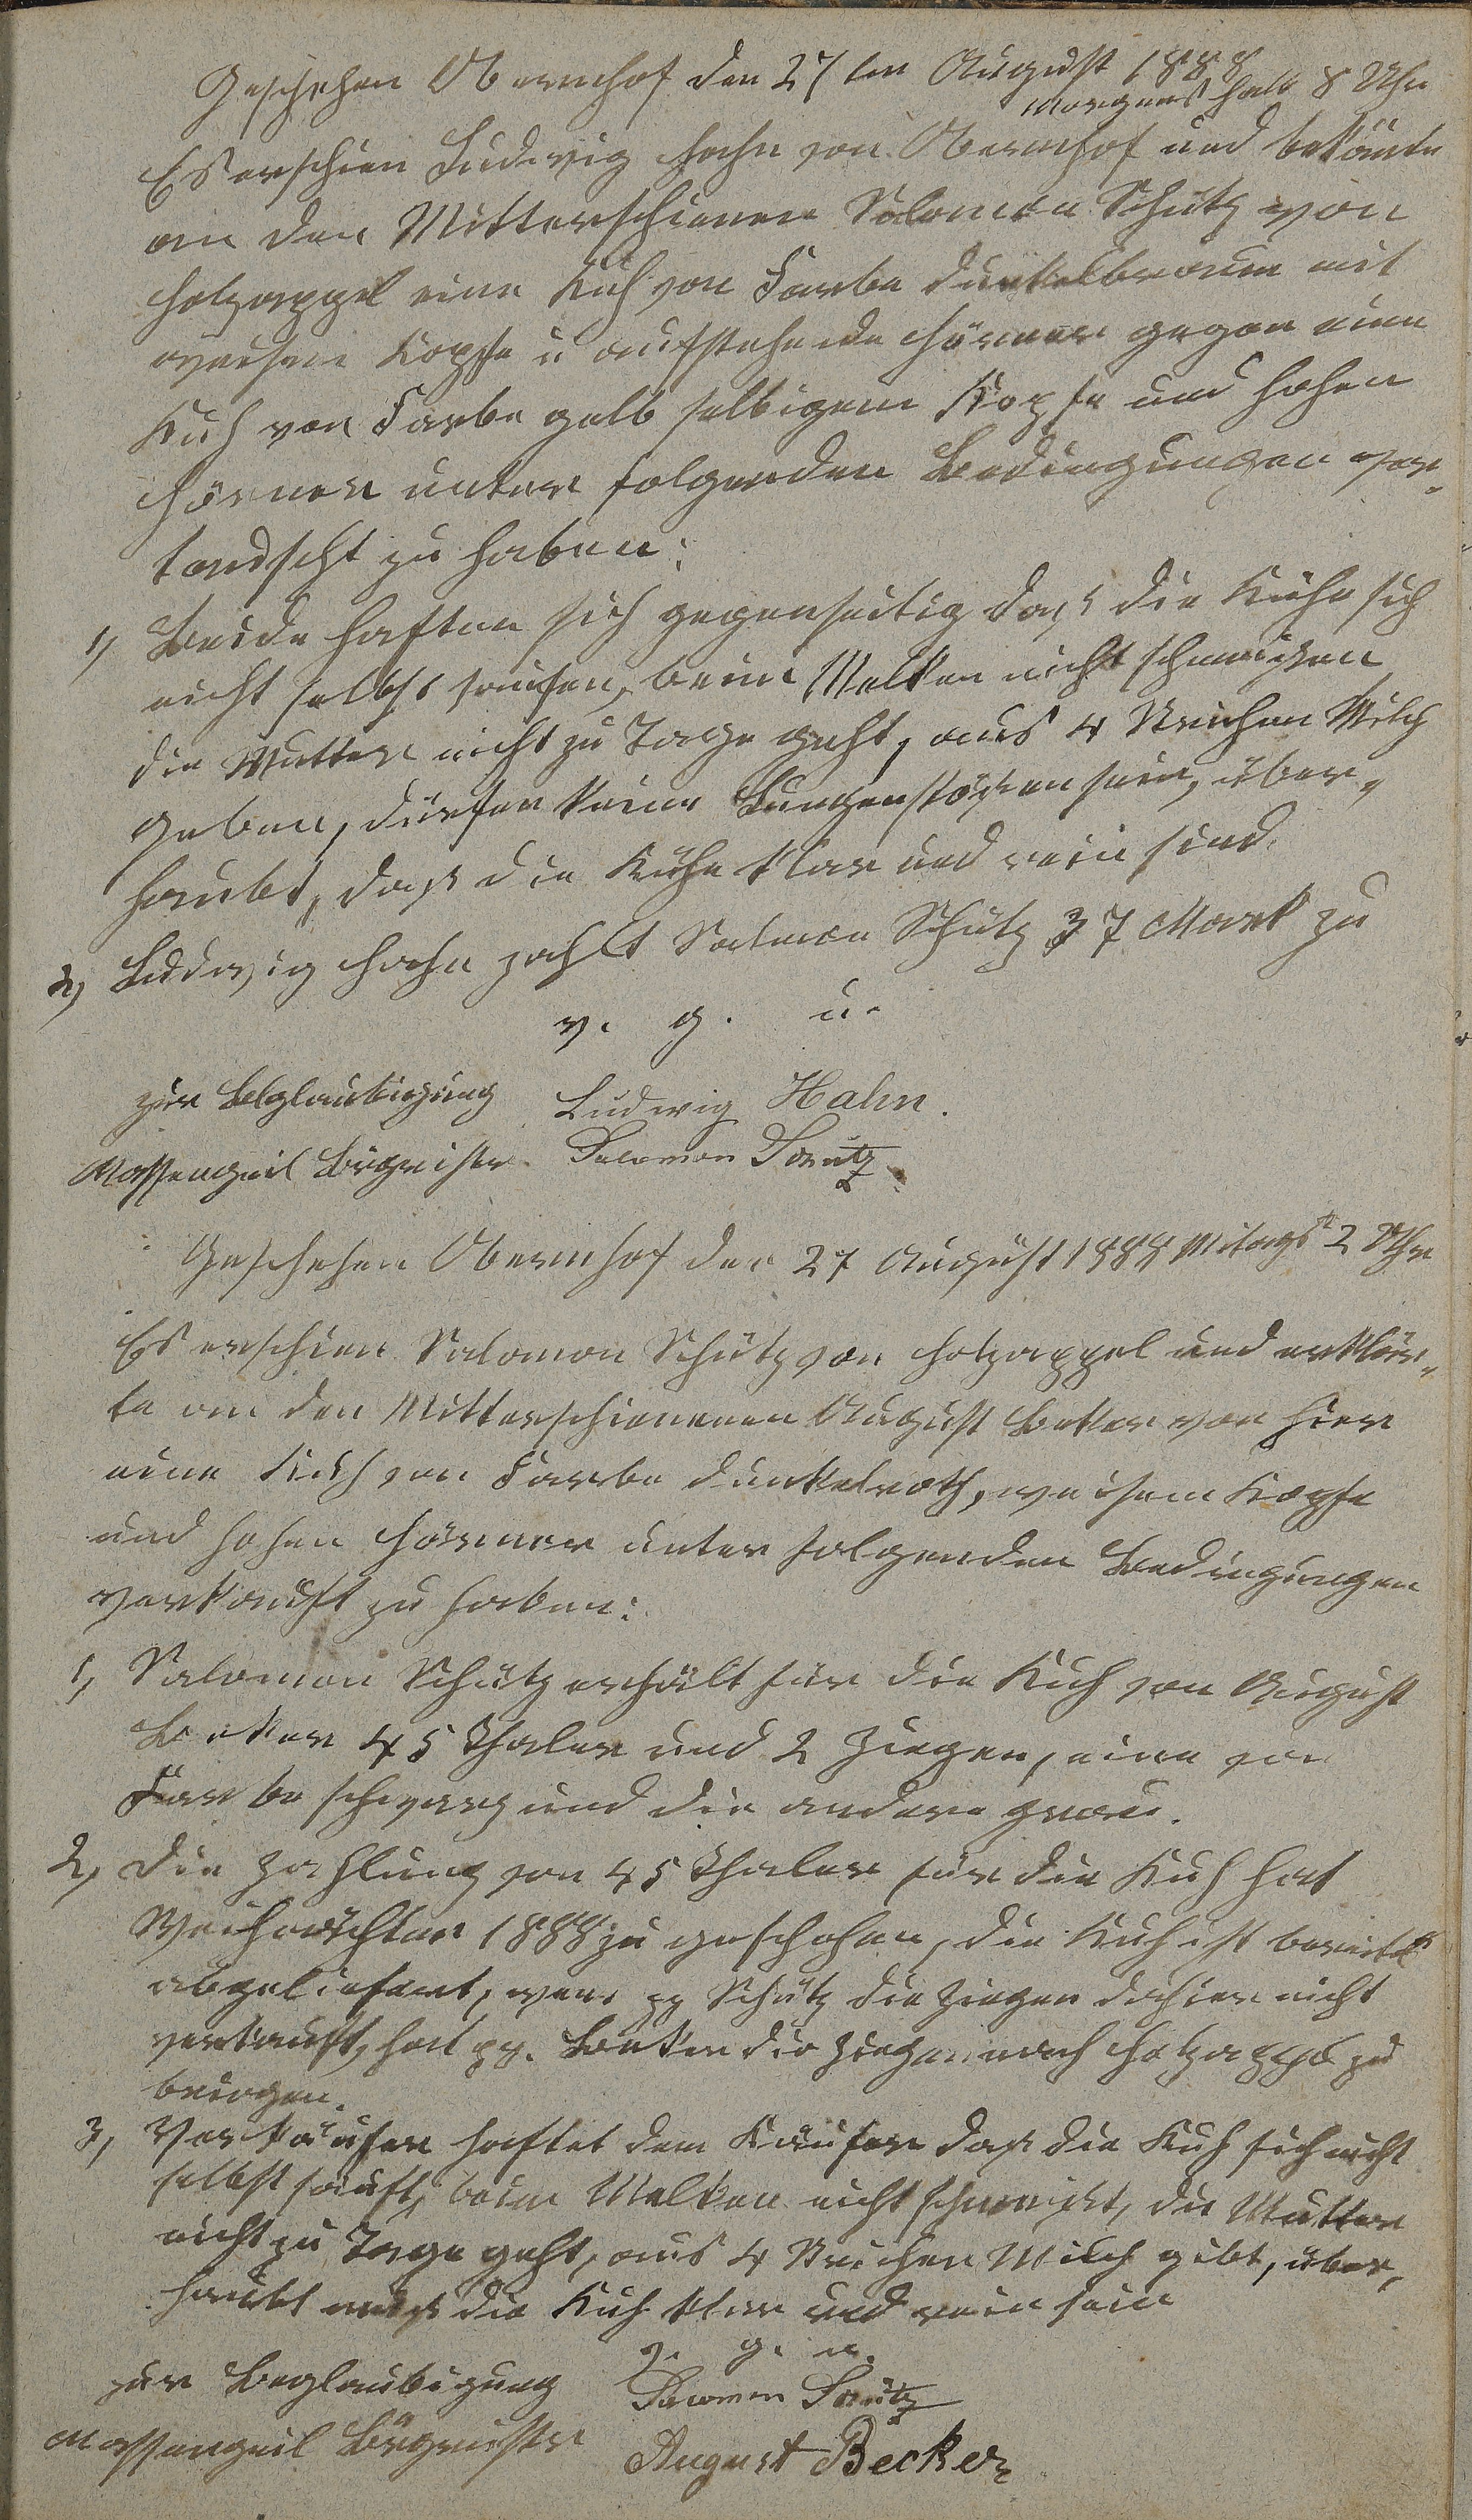 Geschehen Obernhof den 27ten August 1888
morgens halb 8 Uhr
Es erschien Ludwig Hahn von Obernhof und bekannte
an den Mitterschienen Salomon Schütz von
Holzappel eine Kuh von Farbe dunkelbraun mit
weisem Kopfe u aufstehende Hörner gegen eine
Kuh von Farbe gelb selbigem Kopfe und hohen
Hörner unter folgenden Bedingungen ver-
tauscht zu haben:
1, Beide haften sich gegenseitig daß die Kühe sich
nicht selbst saufen, beim Melken nicht schmeißen
die Mutter nicht zu Tage geht, aus 4 Strichen Milch
geben, dürfen keine sein, über-
haubt, daß die Kühe klar und rein sind.
2, Ludwig Hahn zahlt Salmon Schütz 37 Mark zu
v. g. u.
zur Beglaubigung Ludwig Hahn.
Massengeil Bürgmeister. Salomon Schütz
Geschehen Obernhof den 27 August 1888 Mitags 2 Uhr
Es erschien Salomon Schütz von Holzappel und erklär-
te an den Mitterschienenen August Beker von hier
eine Kuh von Farbe dunkelroth, weisem Kopfe
und hohen Hörner unter folgenden Bedingungen
verkauft zu haben:
1, Salomon Schütz erhält für die Kuh von August
Beker 45 Thaler und 2 Ziegen, eine von
Farbe schwarz und die andere grau.
2, Die Zahlung von 45 Thaler für die Kuh hat
Weihnachten 1888 zu geschehen, die Kuh ist bereits
abgeliefert, wenn pp Schütz die Ziegen dahier nicht
verkauft, hat pp. Beker die Ziegen nach Holzappel zu
bringen.
3, Verkäufer haftet dem Käufer daß die Kuh sich nicht
selbst sauft, beim Melken nicht schmeißt, die Mutter
nicht zu Tage geht, aus 4 Strichen Milch gibt, über-
haubt muß die Kuh klar und rein sein
v. g. u.
zur Beglaubigung Salomon Schütz
Massengeil Bürgmeister August Becker